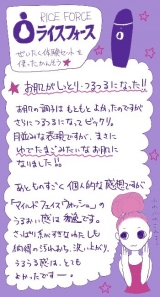 RICE FORCE
ライスフォース
ぜいたく体験セットを
使ったかんそう
お肌がしっとり・つるつるになった!!
お肌の調子はもともとよかったのですが
さらにつるつるになってビックリ。
月並みな表現ですが、まさに
ゆでたまごみたいなお肌に
なりました!!
あとものすごく個人的な感想ですが
「マイルドフェイスウォッシュ」の
うるおい感は
さっぱり系がすきなわたしも
納得の
うるうる感は、とても
よかったですー。